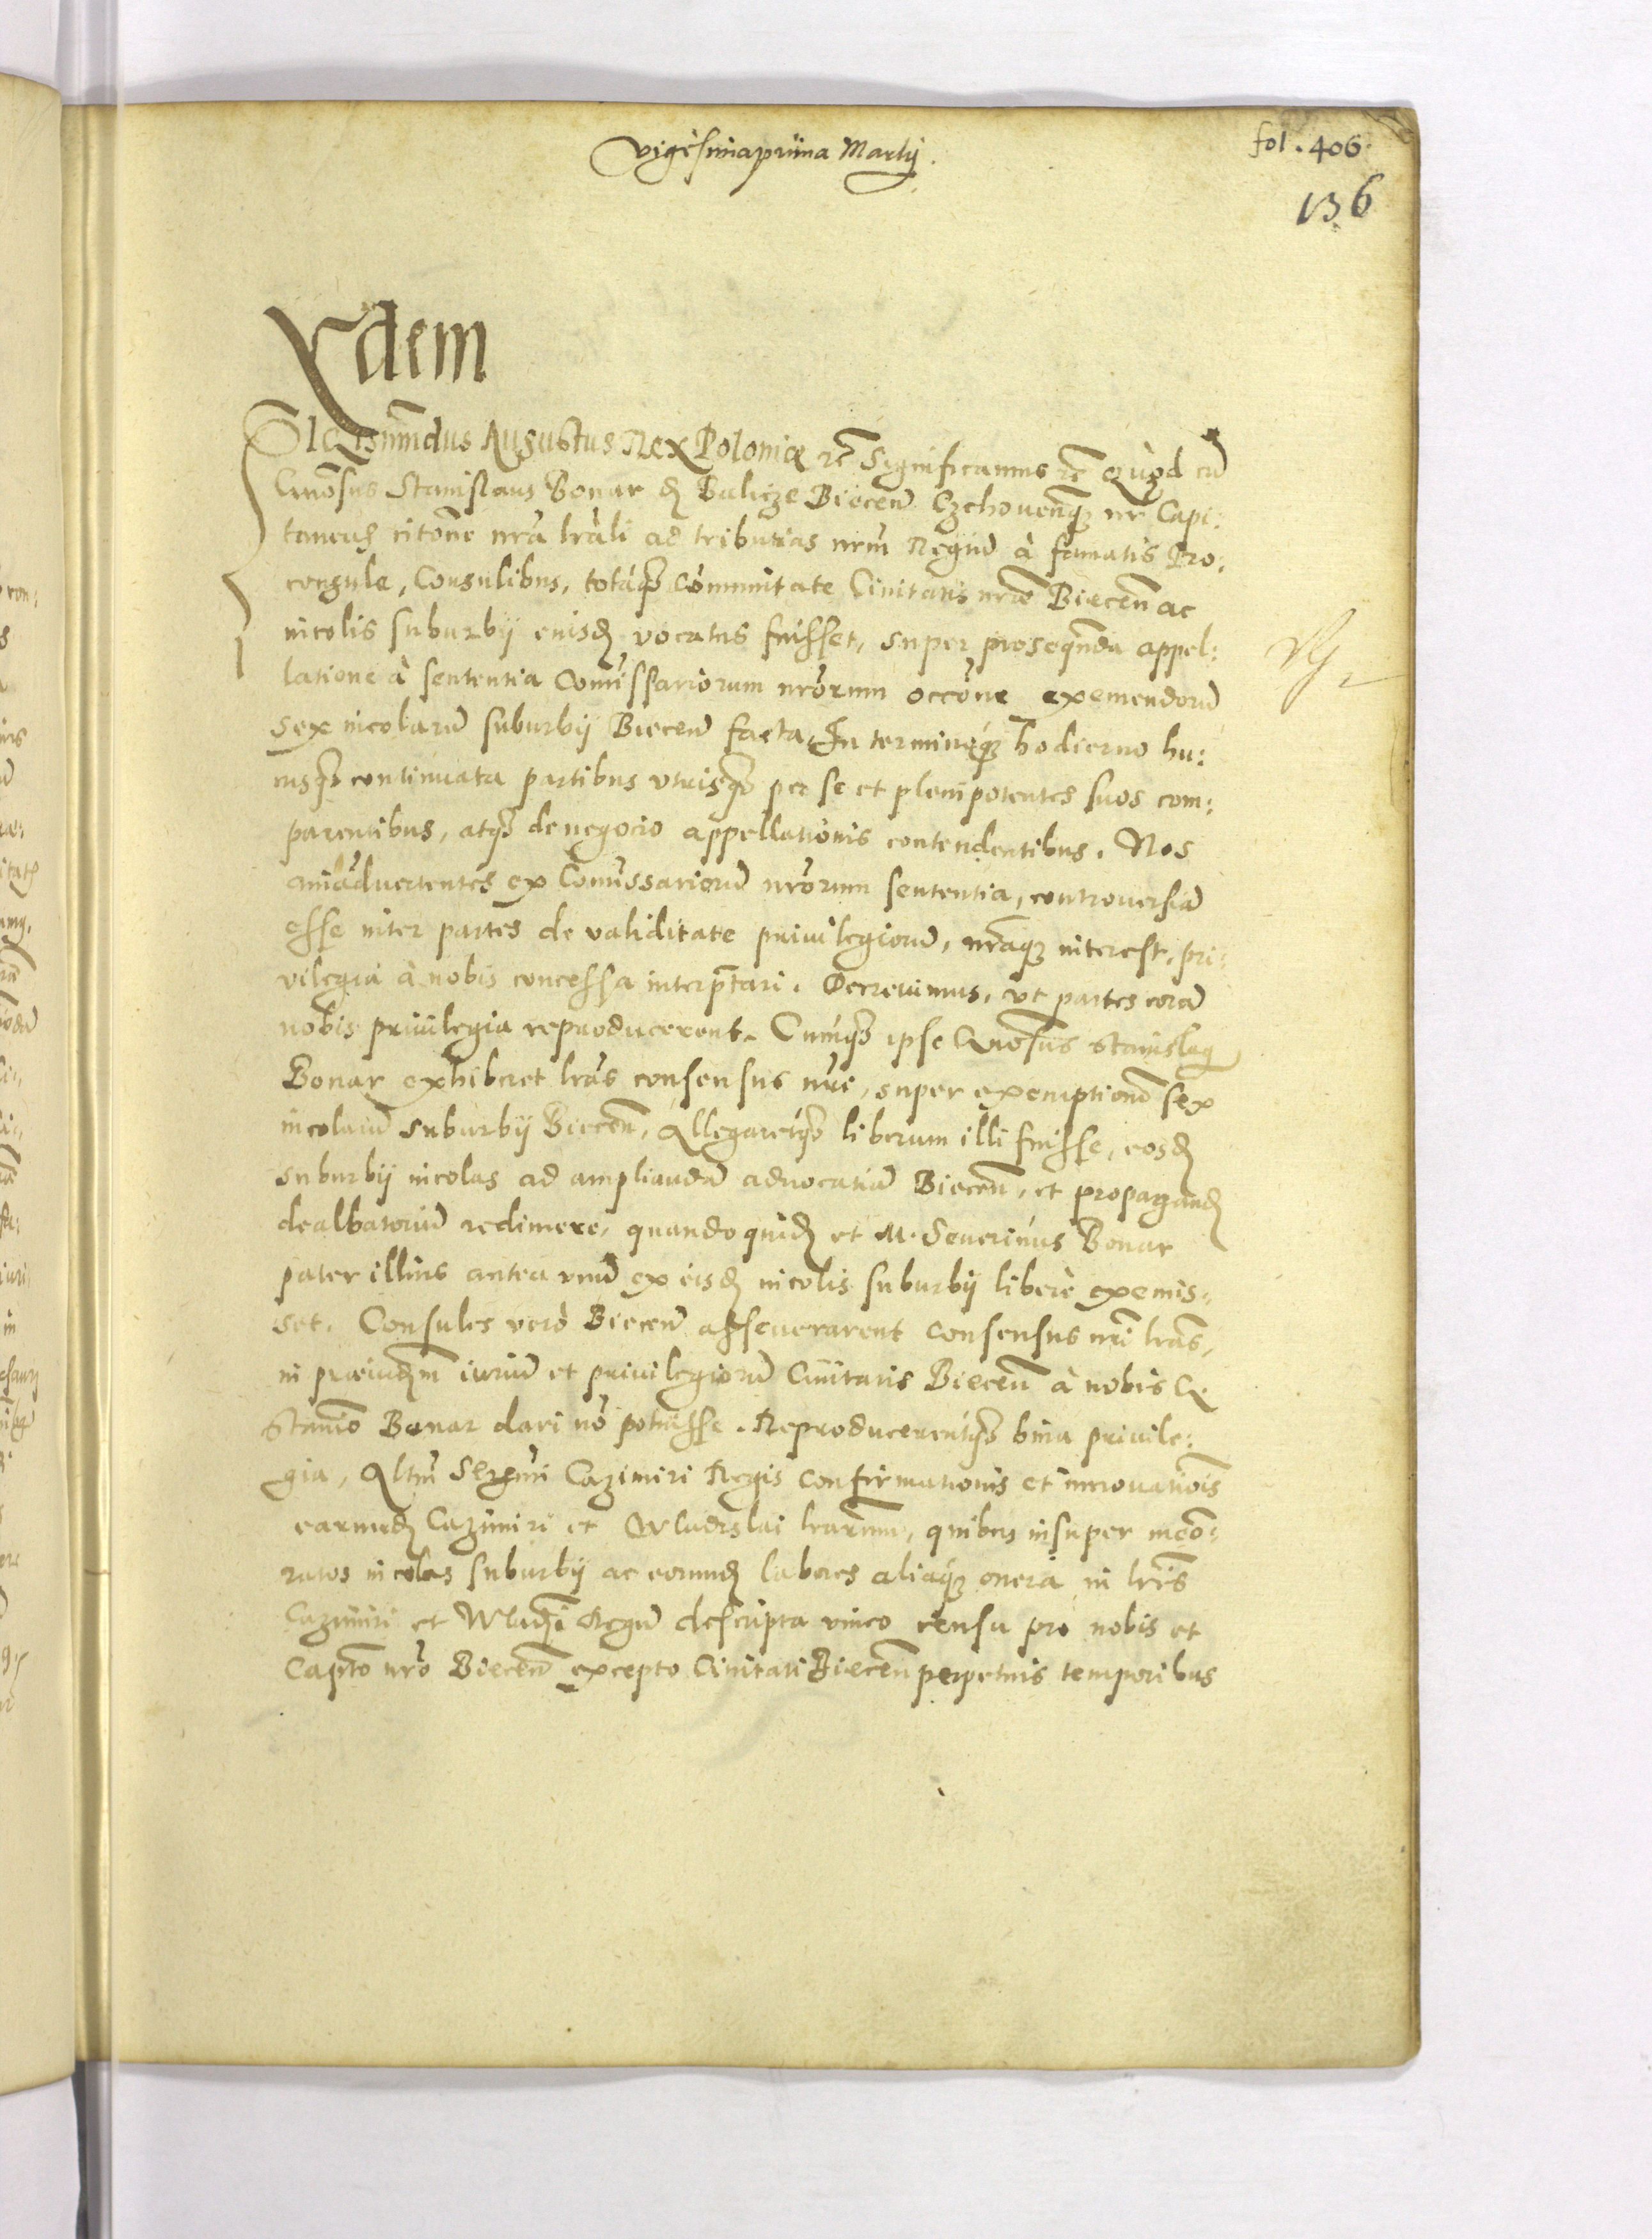 Vigesimaprima Martij.
fol. 406.
136
Idem
SIGISmūdus Augustus Rex Poloniæ rc̄ Significamus rc̄ Quod cū
Gnōsus Stanislaus Bonar de Balicze Biecen̄ Czchouenq̄ nr̄ Capi:
taneus citōne nrā lrāli ad tributias nrm̄ Regnū à famatis Pro:
consule, Consulibus, totaq̄ cōmunitate Ciuitatis nrāe Biecen̄ ac
incolis suburbij eiusd̄ vocatus fuisset, super prosequēda appel:
latione à sententia Comissariorum nrōrum occōne exemendorū
sex incolarū suburbij Biecen̄ facta, In terminoq̄ hodierno hu:
cusq̄ continuata partibus vtrisq̄ per se et plenipotentes suos com:
parentibus, atq̄ de negocio appellationis contendentibus. Nos
aniaduertentes ex Comissariorū nrōrum sententia, controuersiā
esse inter partes de validitate priuilegiorū, nr̄aq̄ interest, pri:
vilegia à nobis concessa interp̄tari. Decreuimus, vt partes corā
nobis priuilegia reproducerent. Cumq̄ ipse Gnōsus Stanislaus
Bonar exhiberet lrās consensus nri, super exemptionē sex
incolarū suburbij Biecen̄, Allegaretq̄ liberum illi fuisse, eosd̄
suburbij incolas ad ampliandā aduocatiā Biecen̄, et propagand̄
dealbatoriū redimere, quandoquid̄ et M. Seuerinus Bonar
pater illius antea vnū ex eisd̄ incolis suburbij liberè exemis:
set. Consules verò Biecen̄ asseuerarent consensus nrī lrās,
in præiud̄m iuriū et priuilegiorū Ciuitatis Biecen̄ à nobis G.
Stanīo Bonar dari nō potuisse. Reproducerentq̄ bina priuile:
gia, Altm̄ Sermi Cazimiri Regis confirmationis et innouatiōis
earund̄ Cazimiri et Wladislai lrarum, quibus insuper
incolas suburbij ac eorund̄ labores aliaq̄ onera in lrīs
Cazimiri et Wladi Regū descripta vnico censu pro nobis et
Captō nrō Biecen̄ excepto Ciuitati Biecen̄ perpetuis temporibus